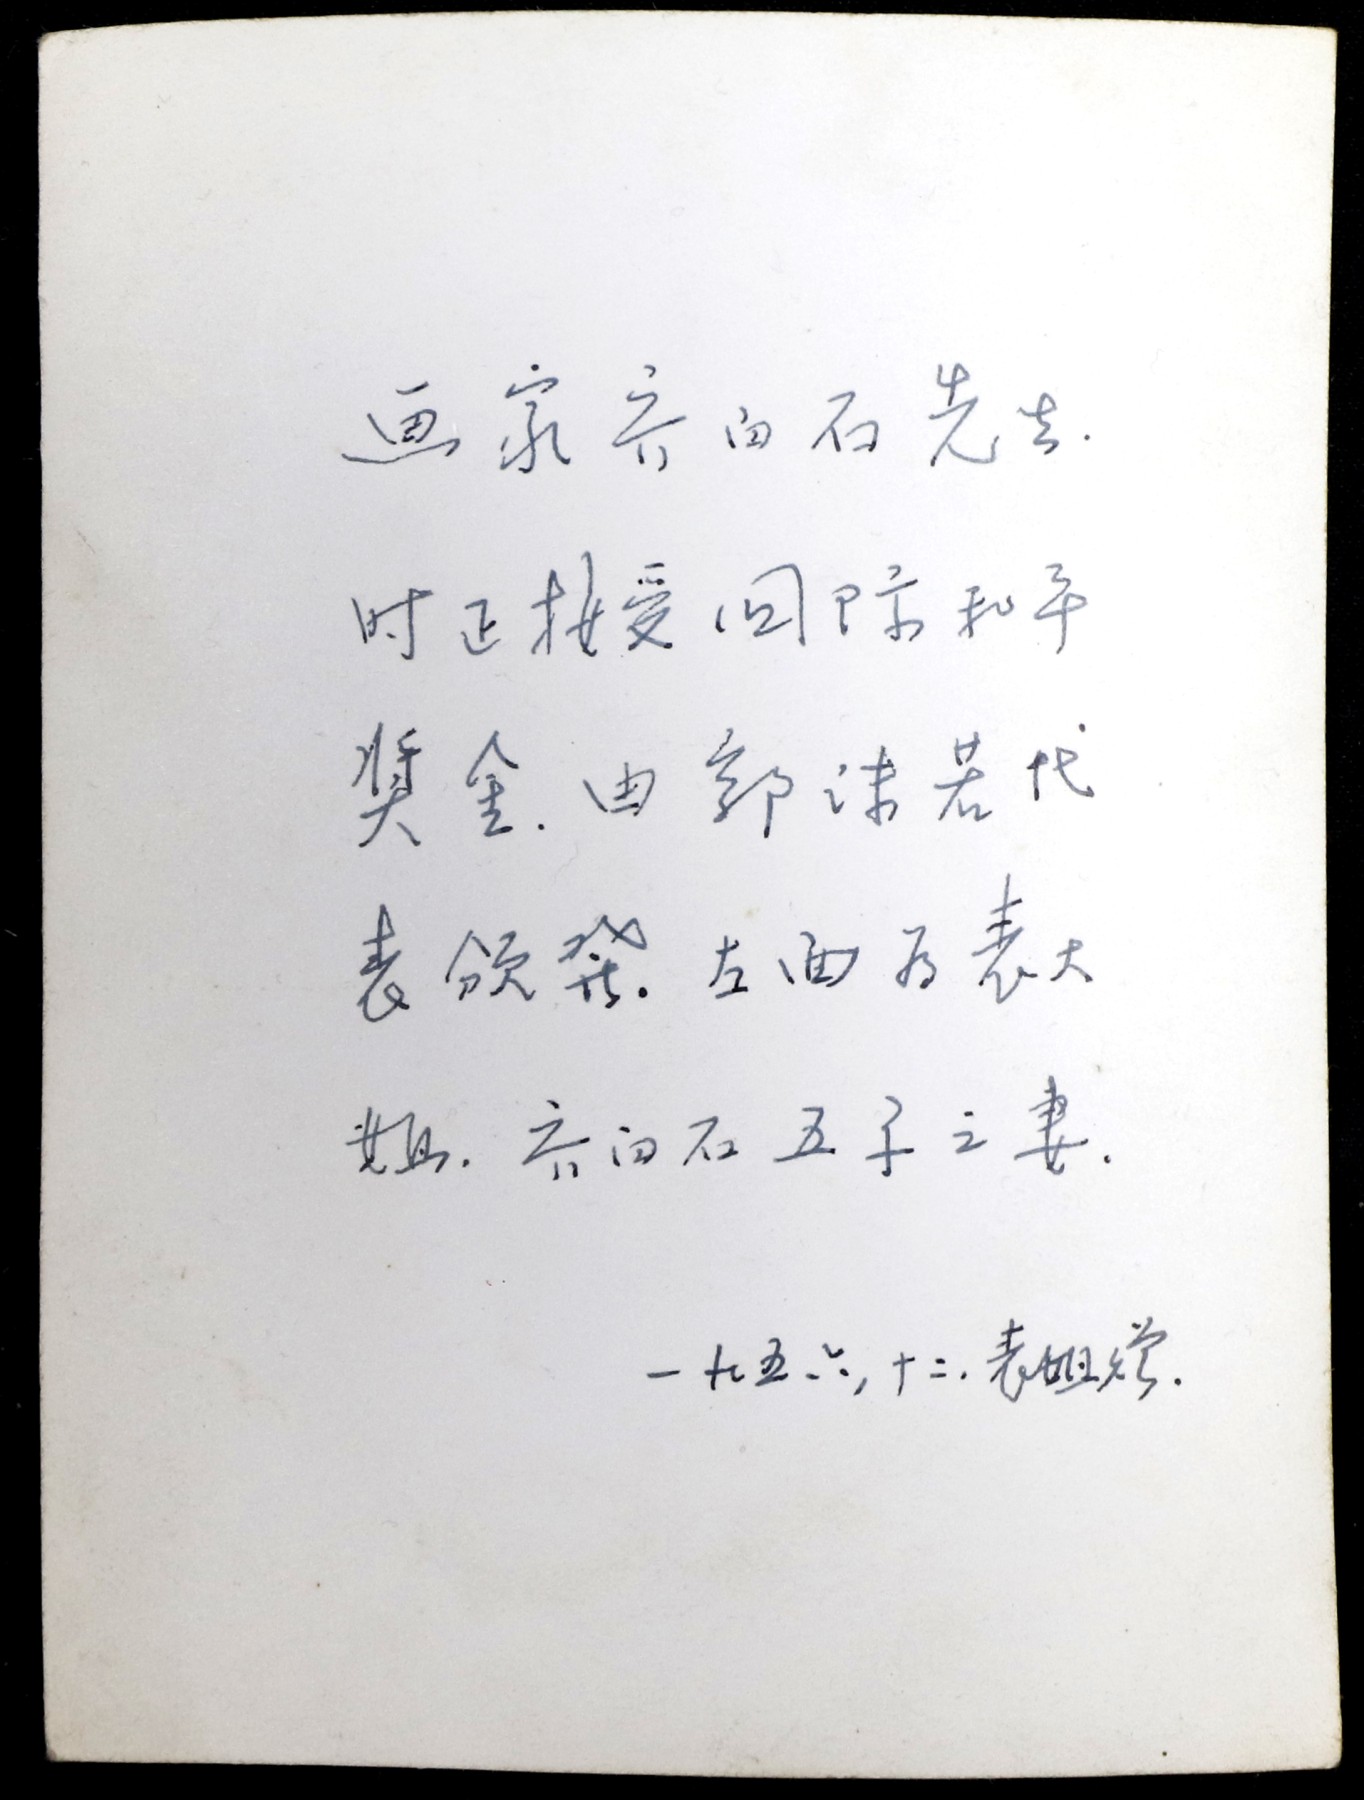 画家齐白石先生.
时正接受国际和平
奖金.由郭沫若代
表颁发.左面为表大
姐.齐白石五子之妻.
一九五六,十二.表姐赠.